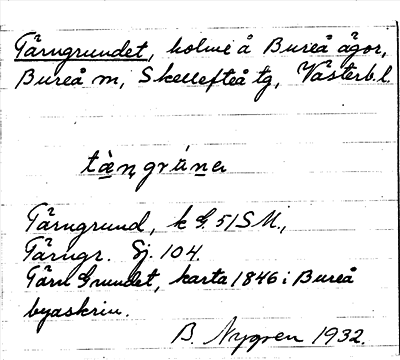 Tärngrundet, holme å Bureå ägor,
Bureå m, Skellefteå tg, Västerb. l
tæ̀ṇgrúṇer
Tärngrund, k G. 51 SM,
Tärngr. Sj. 104.
Tärn Grundet, karta 1846 i Bureå
byaskrin.
B. Nygren 1932.